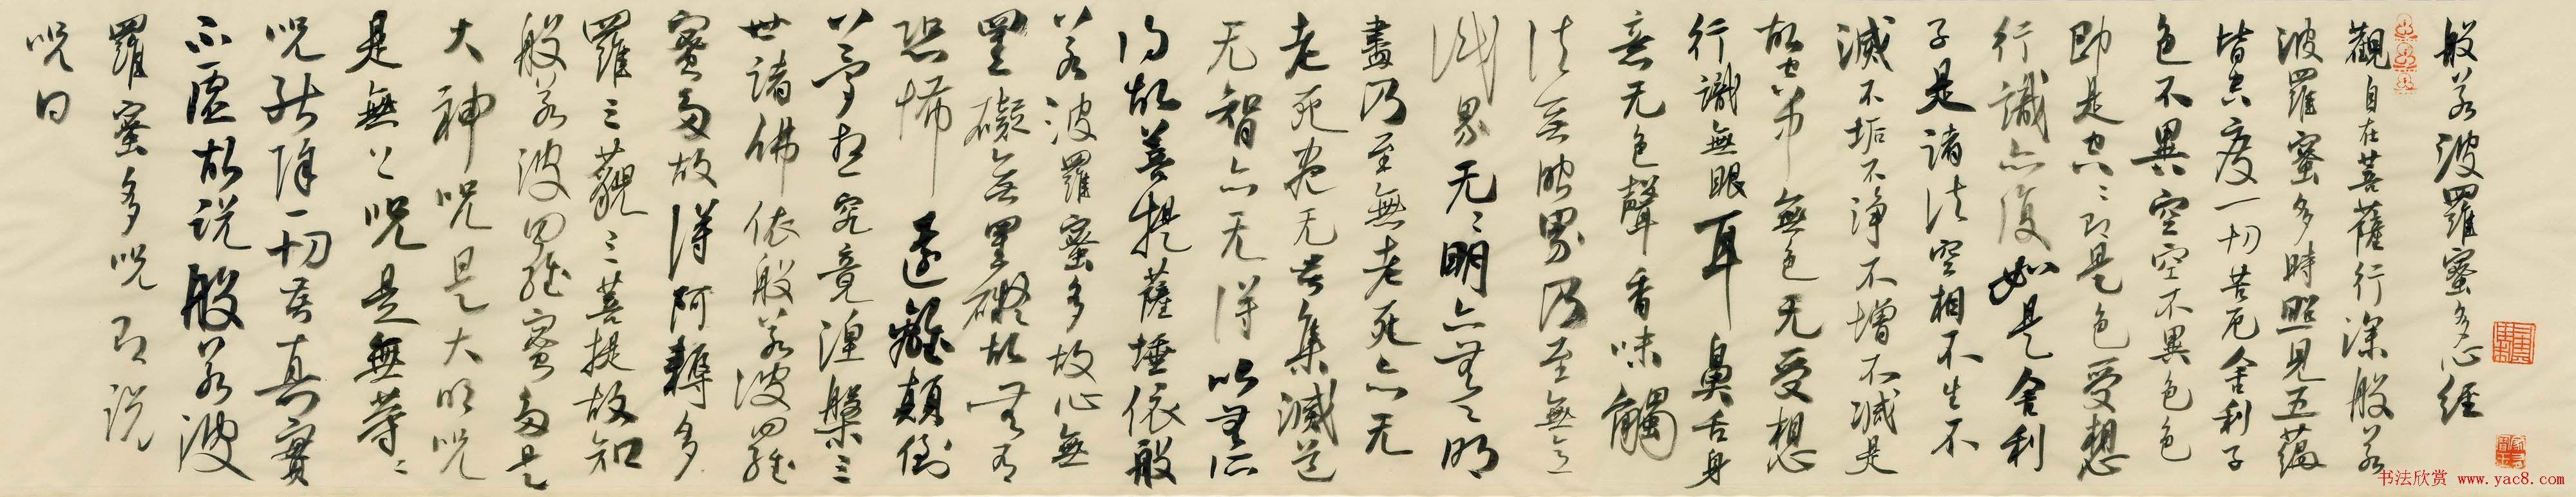 般若波羅蜜多心经
觀自在菩薩行深般若
波羅蜜多時照見五蕴
皆空度一切苦厄舍利子
色不異空空不異色色
即是空〻即是色受想
行識亦復如是舍利
子是諸法空相不生不
滅不垢不净不增不减是
故空中無色无受想
行識無眼耳鼻舌身
意无色聲香味觸
法無眼界乃至無意
识界无〻明亦無〻明
盡乃至無老死亦无
老死盡无苦集滅道
无智亦无得以無所
得故菩提薩埵依般
若波羅蜜多故心無
罣礙無罣礙故無有
恐怖遠離顛倒
夢想究竟涅槃三
世諸佛依般若波羅
蜜多故得阿耨多
羅三藐三菩提故知
般若波罗蜜多是
大神呪是大明呪
是無上呪是無等〻
呪能除一切苦真實
不虚故说般若波
羅蜜多呪即说
呪曰
书法欣赏 www.yac8.com